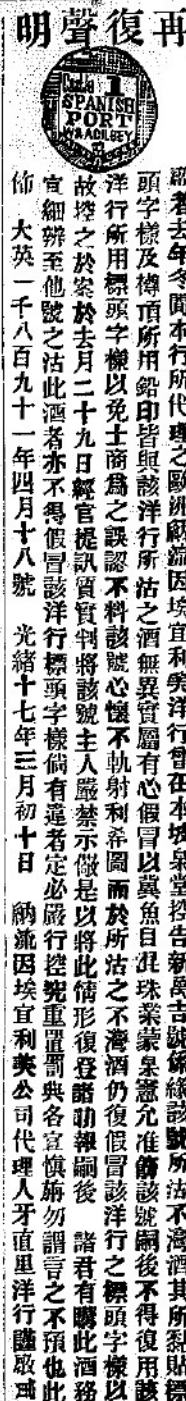 再復聲明
Castle 1
SPANISH
PORT
W&A GILBEY
啟者去年冬間本行所代理之歐洲顧流因埃宜利勞洋行曾在本坡臬堂控告新萬吉號係緣該號所沽不灣酒其所黏貼標
頭字樣及樽頂所用鉛印皆與該洋行所沽之酒無異實屬有心假冒以冀魚目混珠業蒙臬憲允准飭該號嗣後不得復用該
洋行所用標頭字樣以免士商為之誤認不料該號心懷不軌射利希圖而於所沽之不灣酒仍復假冒該洋行之標頭字樣以
故控之於案於去月二十九日經官提訊質實判將該號主人嚴禁示儆是以將此情形復登諸叻報嗣後 諸君有購此酒務
宜細辨至他號之沽此酒者亦不得假冒該洋行標頭字樣倘有違者定必嚴行控究重置罰典各宜慎旃勿謂言之不預也此
佈 大英一千八百九十一年四月十八號 光緒十七年三月初十日 顧流因埃宜利英公司代理人牙直里洋行謹啟